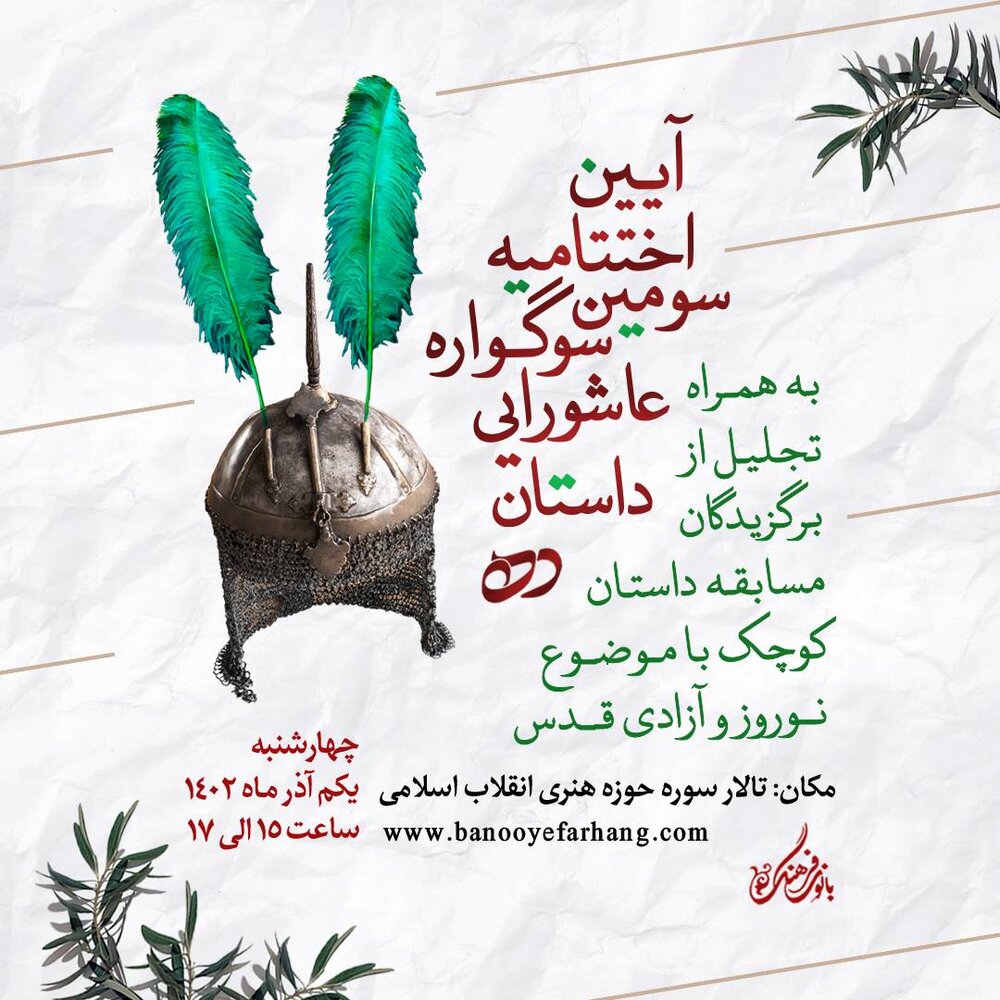 آیین
اختتامیه
سومین
سوگواره
عاشورایی
داستان
ده
به همراه
تجلیل از
برگزیدگان
مسابقه داستان
کوچک با موضوع
نوروز و آزادی قدس
چهارشنبه
یکم آذر ماه ۱۴۰۲
ساعت ۱۵ الی ۱۷
مکان: تالار سوره حوزه هنری انقلاب اسلامی
www.banooyefarhang.com
بانوی فرهنگ